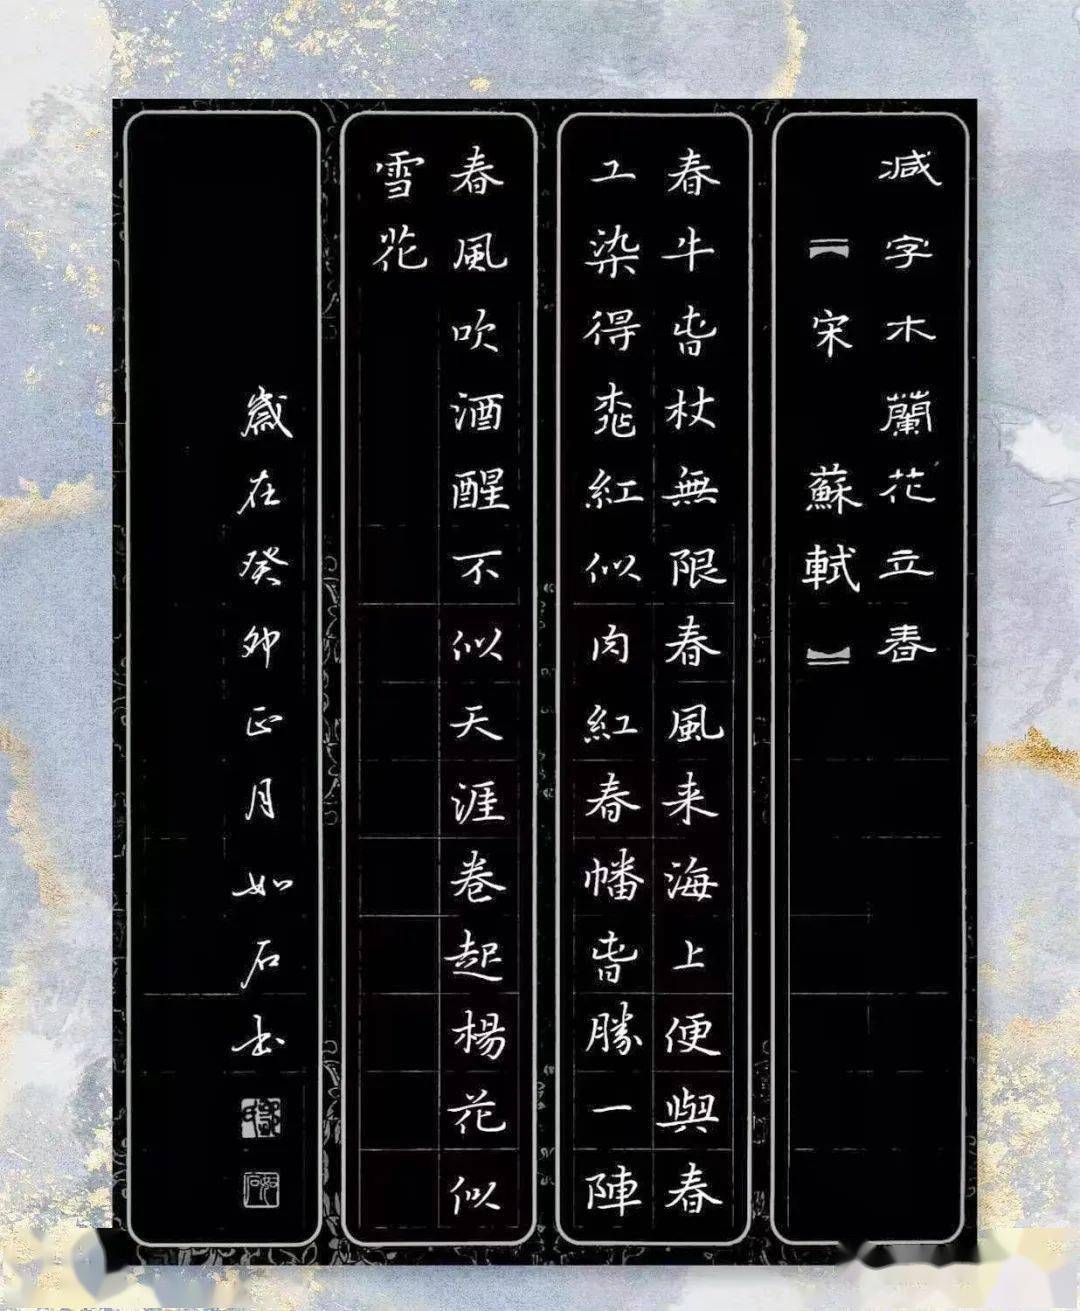 減字木蘭花立春
【宋 蘇軾】
春牛旾杖無限春風来海上便與春
工染得桃紅似肉紅春幡旾勝一陣
春風吹酒醒不似天涯卷起楊花似
雪花
歲在癸卯正月如石书